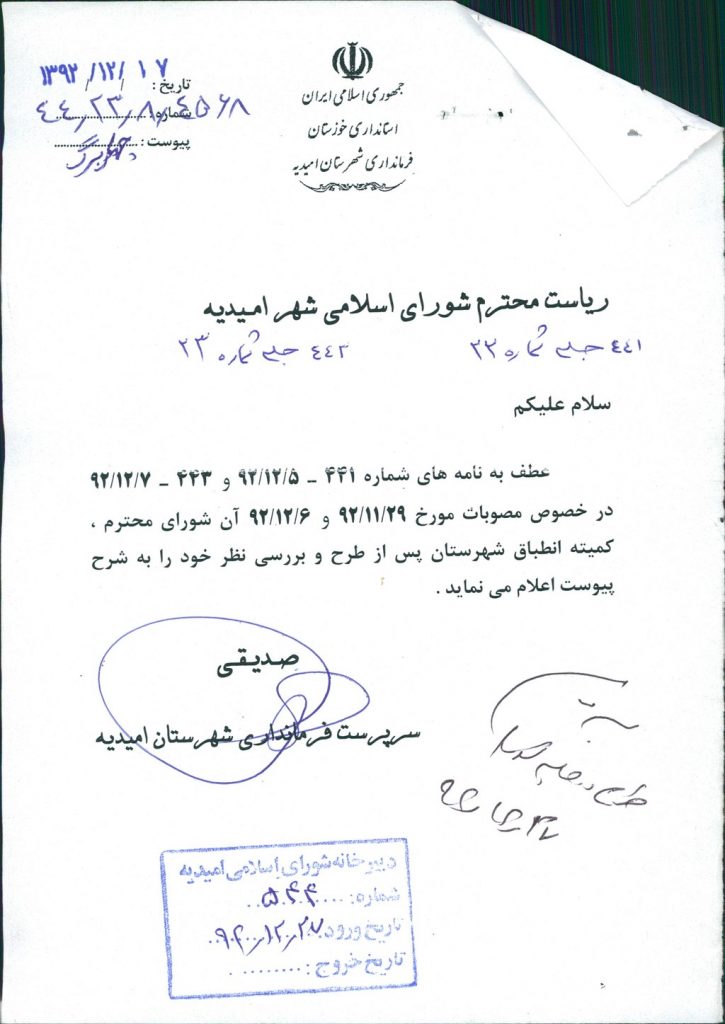 جمهوری اسلامی ایران
استانداری خوزستان
فرمانداری شهرستان امیدیه
تاریخ : ۱۳۹۲/۱۲/۱۷
شماره : ۴۴,۲۳,۸,۴۵۶۸
پیوست : چهاربرگ
ریاست محترم شورای اسلامی شهر امیدیه
٤٤١ جلسه شماره ٢٢
٤٤٣ جلسه شماره ٢٣
سلام علیکم
عطف به نامه های شماره ۴۴۱ – ۹۲/۱۲/۵ و ۴۴۳ – ۹۲/۱۲/۷
در خصوص مصوبات مورخ ۹۲/۱۱/۲۹ و ۹۲/۱۲/۶ آن شورای محترم ،
کمیته انطباق شهرستان پس از طرح و بررسی نظر خود را به شرح
پیوست اعلام می نماید .
صدیقی
سرپرست فرمانداری شهرستان امیدیه
دبیرخانه شورای اسلامی امیدیه
شماره: ۵۴۴
تاریخ ورود: ۹۲,۱۲,۲۷
تاریخ خروج :